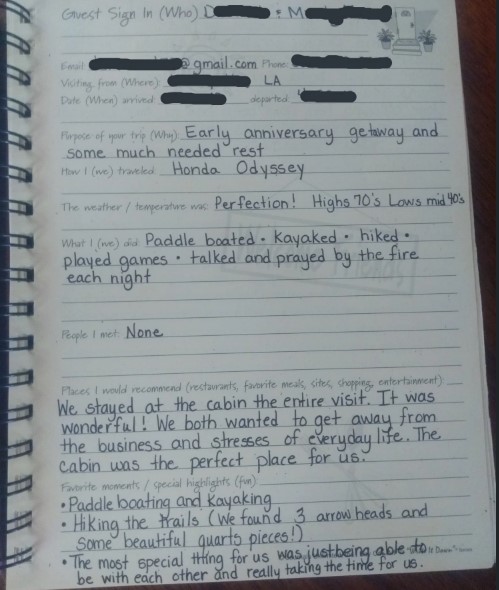 Guest Sign In (Who) D : M
Email: @gmail.com Phone:
Visiting from (Where): LA
Date (When) arrived: departed:
Purpose of your trip (Why): Early anniversary getaway and
some much needed rest
How I (we) traveled: Honda Odyssey
The weather / temperature was: Perfection! Highs 70's Lows mid 40's
What I (we) did: Paddle boated • Kayaked • hiked •
played games • talked and prayed by the fire
each night
People I met: None
Places I would recommend (restaurants, favorite meals, sites, shopping, entertainment):
We stayed at the cabin the entire visit. It was
wonderful! We both wanted to get away from
the business and stresses of everyday life. The
cabin was the perfect place for us.
Favorite moments / special highlights (fun):
• Paddle boating and Kayaking
• Hiking the trails (We found 3 arrowheads and
some beautiful quarts pieces!)
• The most special thing for us was just being able to
be with each other and really taking the time for us.